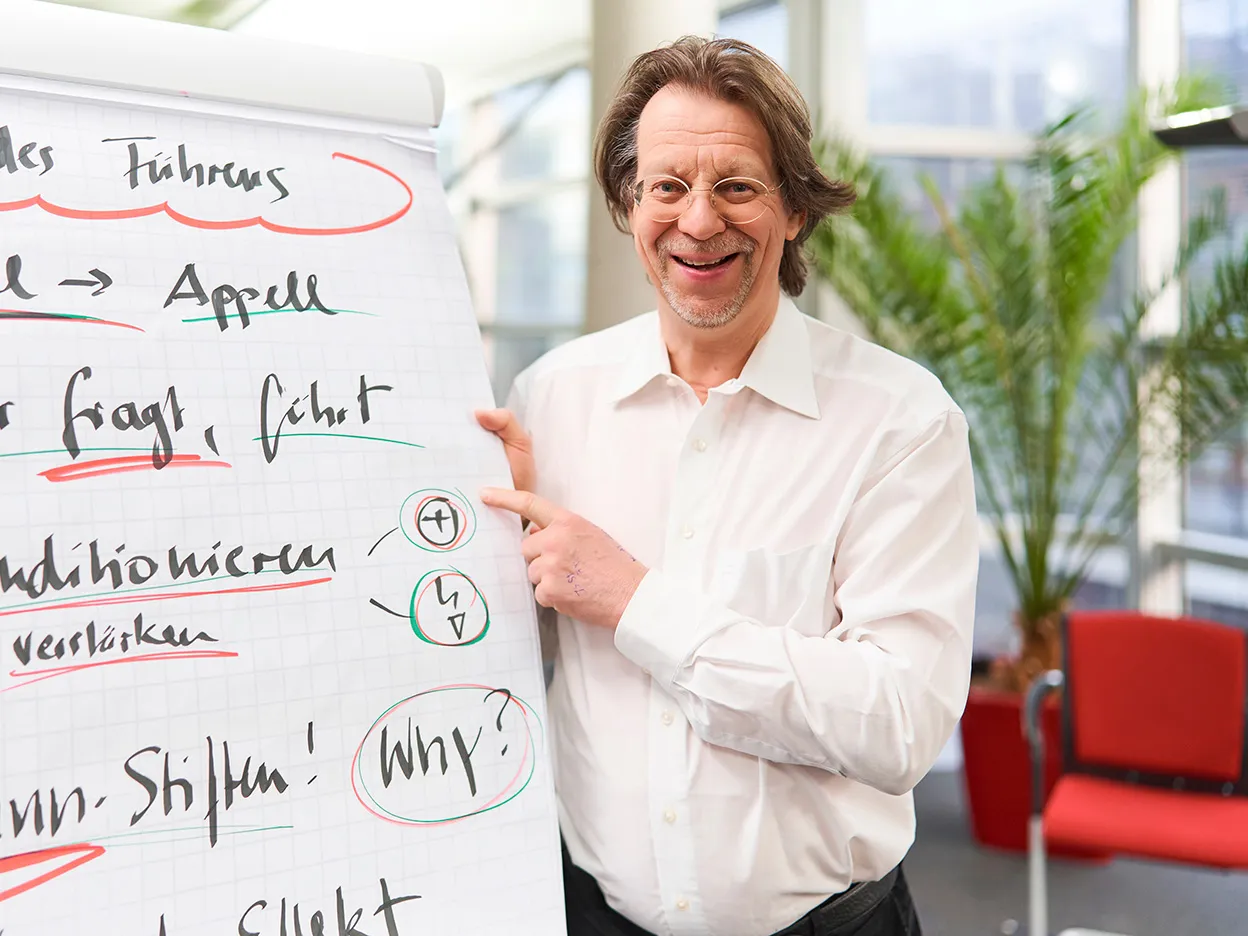 des Führens
→ Appell
fragt, führt
konditionieren +
verstärken
Sinn-Stiften! Why?
Effekt